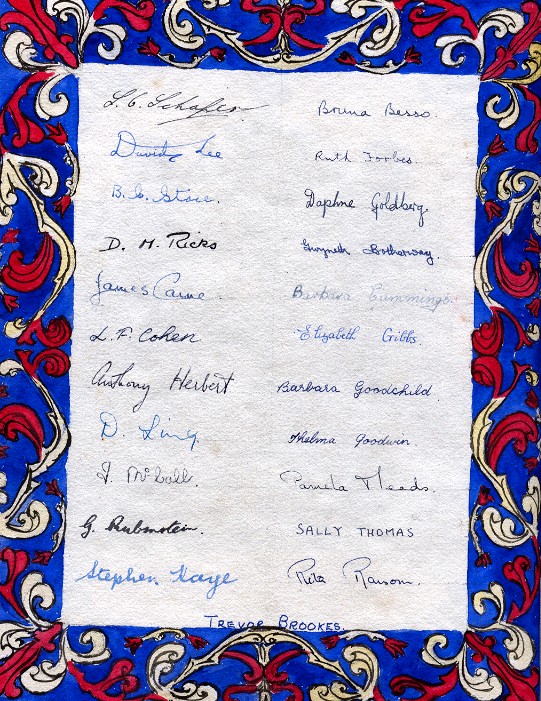 L. C. Schafer
Bruna Besso.
David Lee
Ruth Forbes.
B. C. Stone.
Daphne Goldberg.
D. M. Ricks
Gwyneth Botherway.
James Caine.
Barbara Cummings.
L. F. Cohen
Elizabeth Gibbs.
Anthony Herbert
Barbara Goodchild.
D. Ling.
Thelma Goodwin
J. McColl.
Pamela Meads.
G. Rubinstein.
SALLY THOMAS
Stephen Kaye
Rita Ransom.
TREVOR BROOKES.